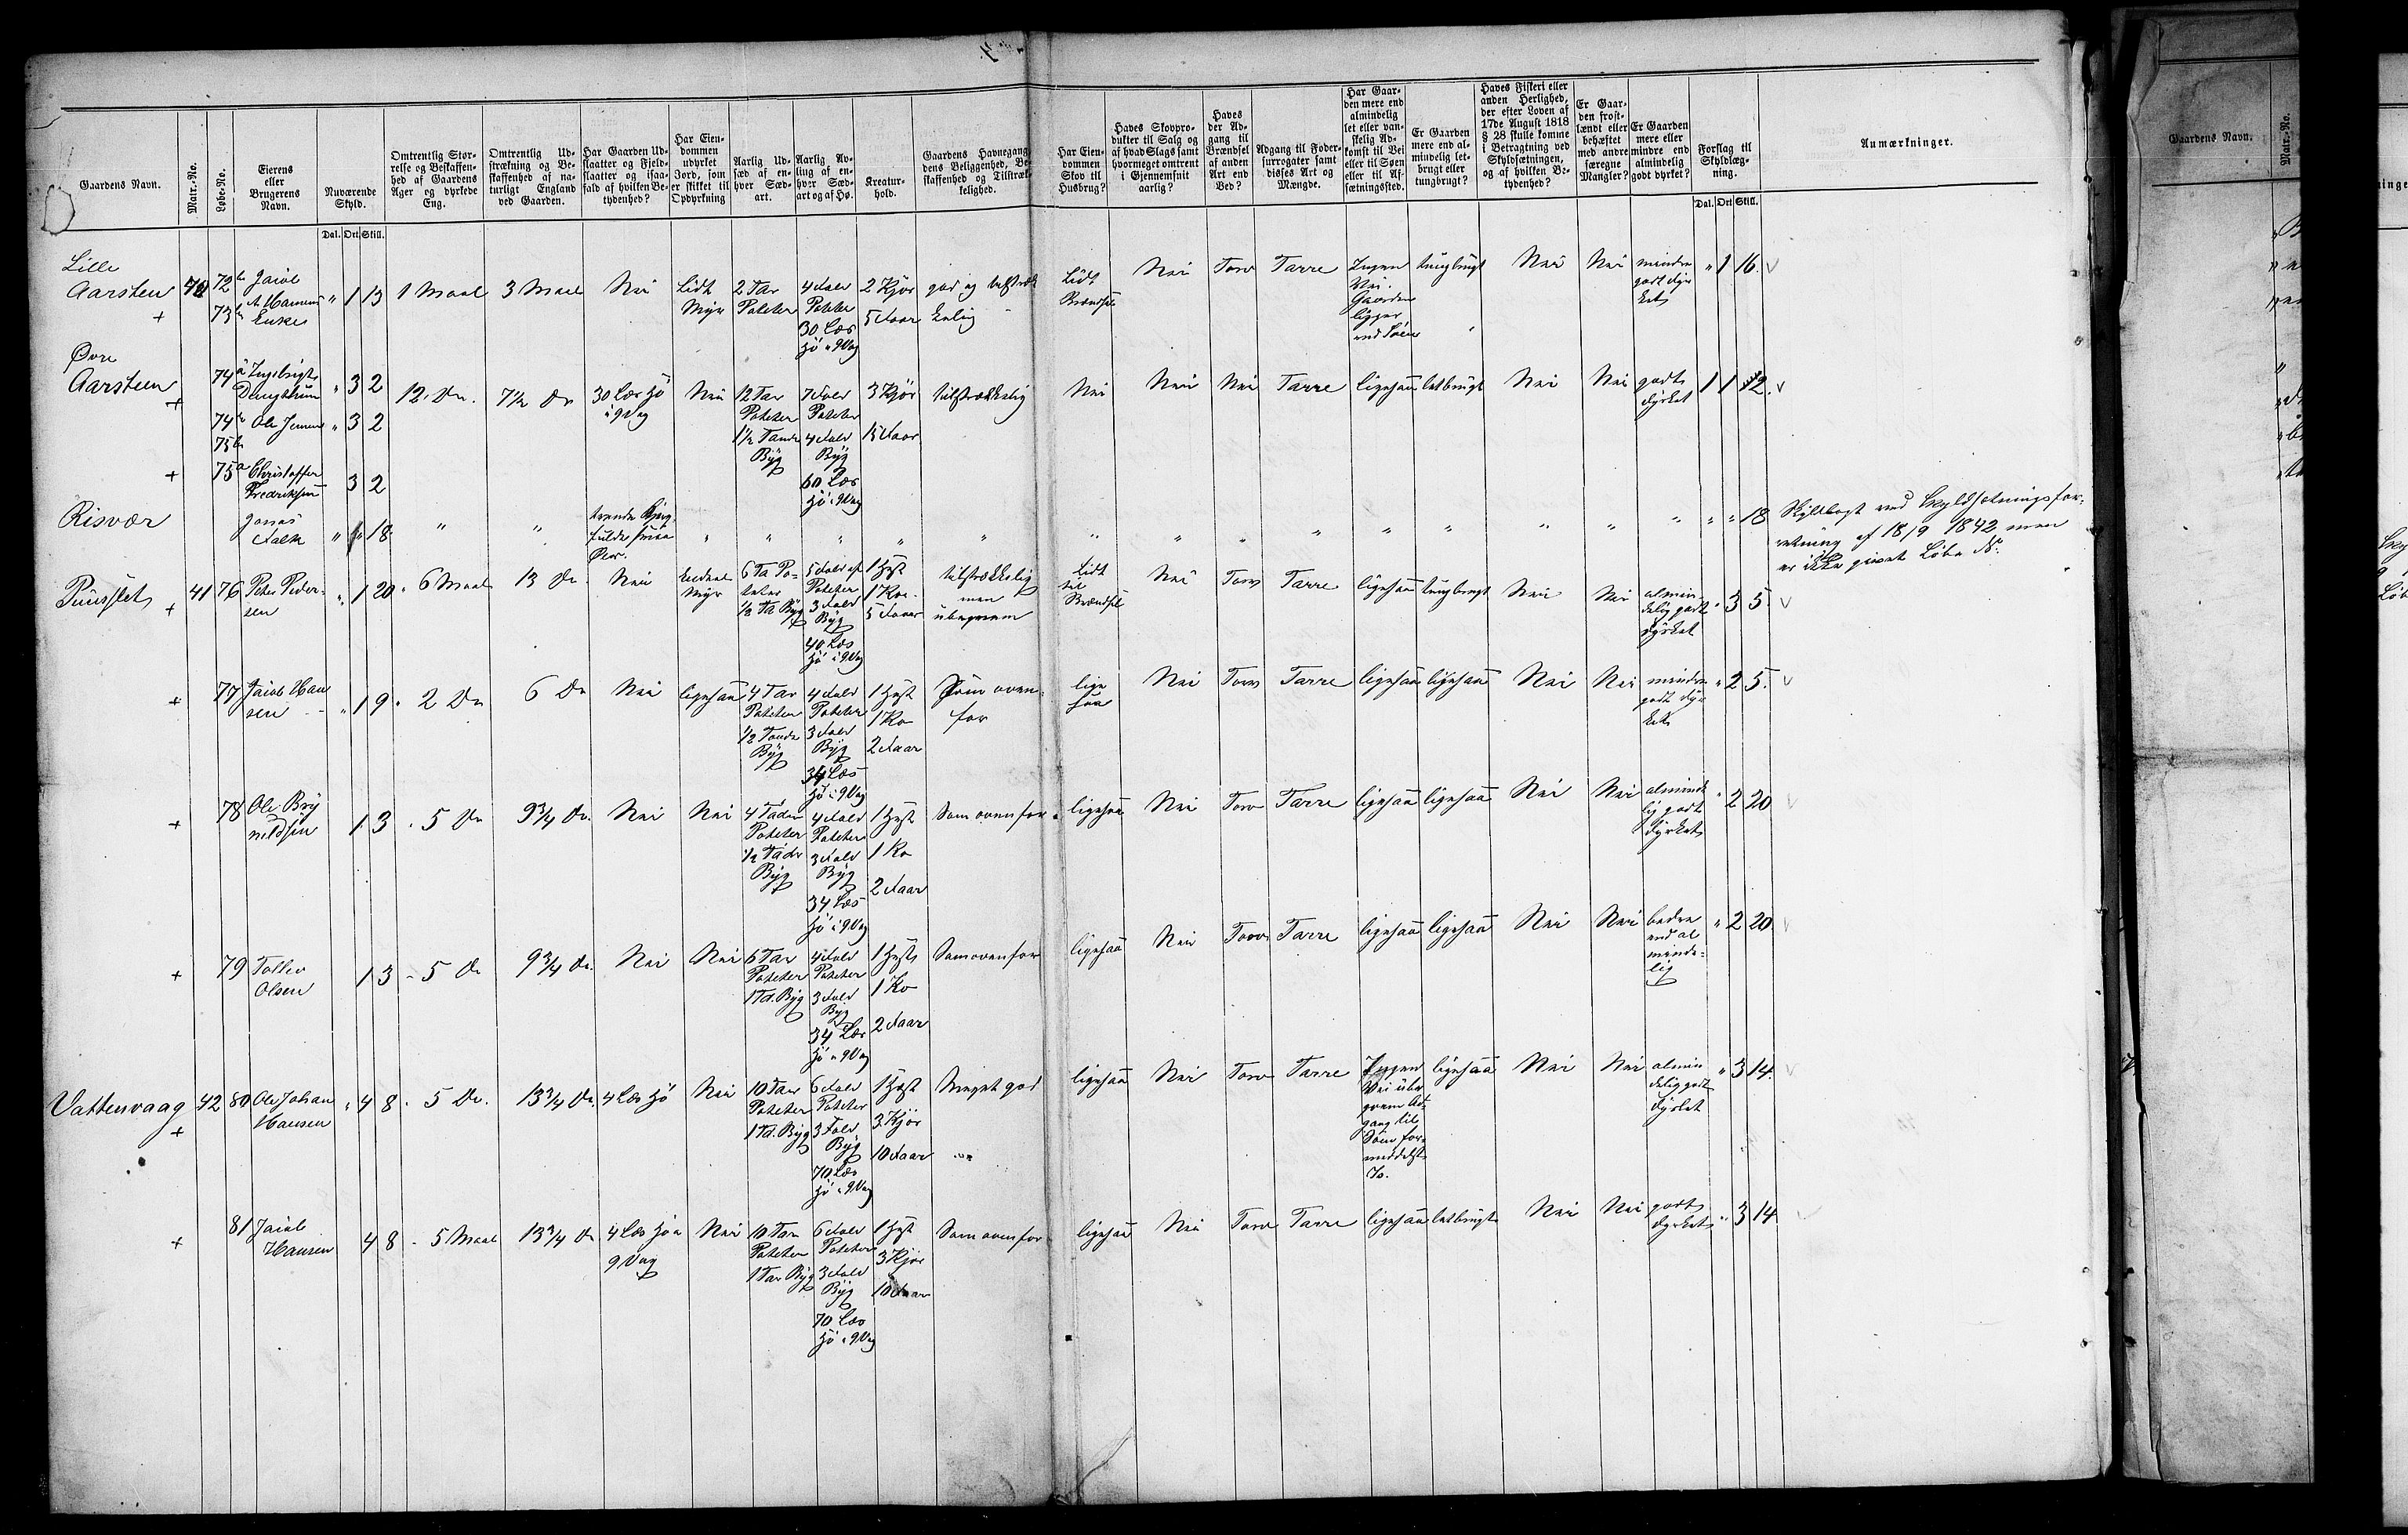 Gaardens Navn.
Matr.-No.
Løbe-No.
Eierens eller Brugerens Navn.
Nuværende Skyld.
Dal. Ort Skill.
Omtrentlig Størrelse og Beskaffenhed af Gaardens Ager og dyrkede Eng.
Omtrentlig Udstrækning og Beskaffenhed af naturligt England ved Gaarden.
Har Gaarden Udslaatter og Fjeldslaatter og isaafald af hvilken Betydenhed?
Har Eiendommen udyrket Jord, som er skikket til Opdyrkning
Aarlig Udsæd af enhver Sædart.
Aarlig Avling af enhver Sædart og af Hø.
Kreaturhold.
Gaardens Havnegang, dens Beliggenhed, Beskaffenhed og Tilstrækkelighed.
Har Eiendommen Skov til Husbrug?
Haves Skovprodukter til Salg og af hvad Slags samt hvormeget omtrent i Gjennemsnit aarlig?
Haves der Adgang til Brændsel af anden Art end Ved?
Adgang til Fodersurrogater samt disses Art og Mængde.
Har Gaarden mere end almindelig let eller vanskelig Adkomst til Vei eller til Søen eller til Afsætningssted.
Er Gaarden mere end almindelig letbrugt eller tungbrugt?
Haves Fiskeri eller anden Herlighed, der efter Loven af 17de August 1818 § 28 skulle komme i Betragtning ved Skyldsætningen, og af hvilken Betydenhed?
Er Gaarden frostlændt eller behæftet med andre færegne Mangler?
Er Gaarden mere eller mindre end almindelig godt dyrket?
Forslag til Skyldlægning.
Dal. Ort Skill.
Anmærkninger.
Lille Aarsteen + 72b 73b Jacob A Hansens Enke " 1 13 1 Maal 3 Maal Nei Lidt Myr 2 Tdr Poteter 4 Fold Poteter 30 Læs Hø a 9 Vog 2 Kjør 5 Faar god og
Lidt Brændsel Nei Torv Tarre Ingen Vei. Gaarden ligger ved Søen tungbrugt Nei Nei mindre godt dyrket " 1 16.
Øvre Aarsteen + 74a Ingebrigt " 3 2 12 Do. 7½ Do 30 Læs Hø i 9 Vog Nei 12 Tdr Poteter 1½ Tønde Byg 7 Fold Poteter 4 Fold Byg 60 Læs Hø i 9 Vog 3 Kjør 15 Faar tilstrækkelig
Nei Nei Nei Tarre ligesaa letbrugt Nei Nei godt dyrket 1 1 12.
74b 75b Ole Jensen " 3 2
+ 75a Christoffer Fredriksen 3 2
Risvær Jonas Falch " " 18 " "
" " 18 Skyldlagt ved Skyldsætningsforretning af 18/9 1842 men er ikke givet Løbe No.
+ 41 76 Peter Pedersen " 1 20 6 Maal 13 Do. Nei Myr 6 Td Poteter ½ Td Byg 5 Fold af Poteter 3 Fold Byg 40 Læs Hø i 9 Vog 1 Hest 1 Ko 5 Faar tilstrækkelig men ubeqvem
Lidt til Brændsel Nei Torv Tarre ligesaa tungbrugt Nei Nei almindelig godt dyrket " 3 5.
+ 77 Jacob Hansen " 1 9 2 Do 6 Do Nei ligesaa 4 Tdr Poteter ½ Tønde Byg 4 Fold Poteter 3 Fold Byg 34 Læs Hø i 9 Vog 1 Hest 1 Ko 2 Faar Som ovenfor
ligesaa Nei Torv Tarre ligesaa ligesaa Nei Nei mindre godt dyrket " 2 5.
+ 78 Ole Brynildsen 1 3 5 Do 9¾ Do. Nei Nei 4 Tdr Poteter ½ Td Byg 4 Fold Poteter 3 Fold Byg 34 Læs Hø i 9 Vog 1 Hest 1 Ko 2 Faar Som ovenfor
ligesaa Nei Torv Tarre ligesaa ligesaa Nei Nei almindelig godt dyrket " 2 20
+ 79 Tollev Olsen 1 3 5 Do 9¾ Do. Nei Nei 6 Tdr Poteter 1 Td. Byg 4 Fold Poteter 3 Fold Byg 34 Læs Hø a 9 Vog 1 Hest 1 Ko 2 Faar Som ovenfor
ligesaa Nei Torv Tarre ligesaa ligesaa Nei Nei bedre end almindelig " 2 20
Vattenvaag + 42 80 Ole Johan Hansen " 4 8 5 Do. 13¾ Do. 4 Læs Hø Nei 10 Tdr Poteter 1 Td. Byg 6 Fold Poteter 3 Fold Byg 70 Læs Hø i 9 Vog 1 Hest 3 Kjør 10 Faar Meget god
ligesaa Nei Torv Tarre Ingen Vei ubeqvem Adgang til Søen formedelst Is. ligesaa Nei Nei almindelig godt dyrket " 3 14.
+ 81 Jacob Hansen 4 8 5 Maal 13¾ Do 4 Læs Hø a 9 Vog Nei 10 Tdr Poteter 1 Tdr Byg 6 Fold Poteter 3 Fold Byg 70 Læs Hø i 9 Vog 1 Hest 3 Kjør 10 Faar Som ovenfor
ligesaa Nei Torv Tarre ligesaa letbrugt Nei Nei godt dyrket " 3 14
Gaardens Navn.
Matr.-No.